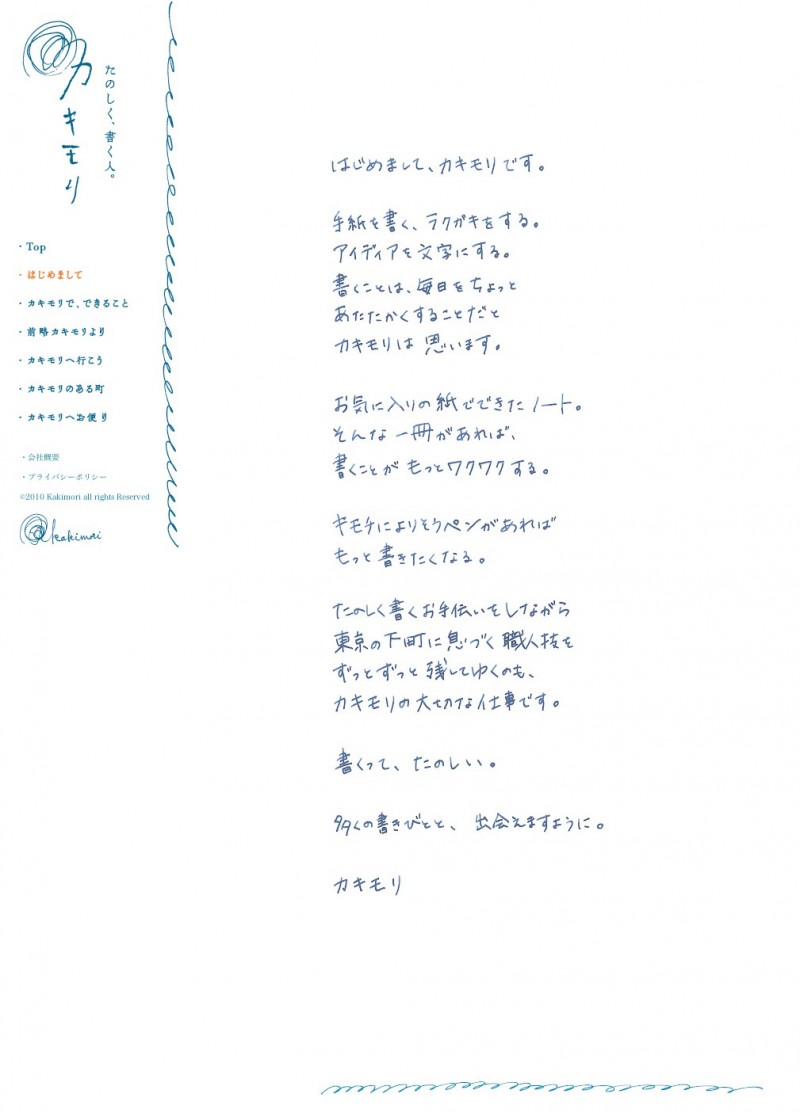 カキモリ
たのしく、書く人。
・Top
・はじめまして
・カキモリで、できること
・前略カキモリより
・カキモリへ行こう
・カキモリのある町
・カキモリへお便り
・会社概要
・プライバシーポリシー
©2010 Kakimori all rights Reserved
@kakimori
はじめまして、カキモリです。
手紙を書く、ラクガキをする。
アイディアを文字にする。
書くことは、毎日をちょっと
あたたかくすることだと
カキモリは思います。
お気に入りの紙でできたノート。
そんな一冊があれば、
書くことがもっとワクワクする。
キモチによりそうペンがあれば
もっと書きたくなる。
たのしく書くお手伝いをしながら
東京の下町に息づく職人技を
ずっとずっと残してゆくのも、
カキモリの大切な仕事です。
書くって、たのしい。
多くの書きびとと、出会えますように。
カキモリ